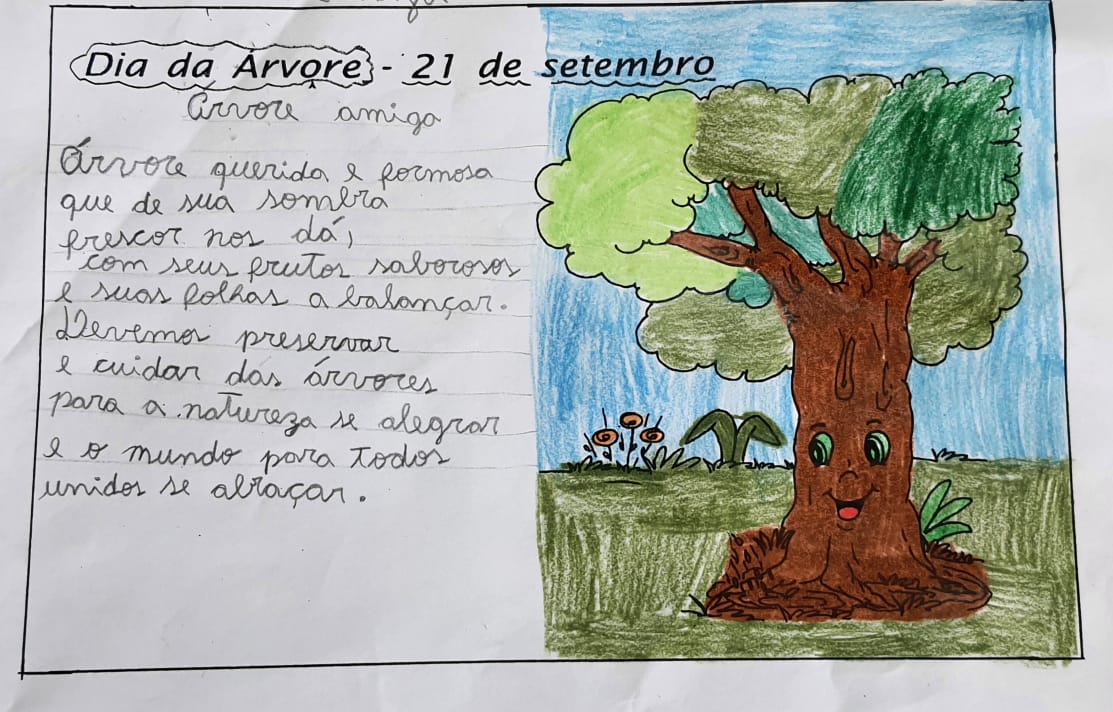 Dia da Árvore - 21 de setembro
Árvore amiga
Árvore querida e formosa
que de sua sombra
frescor nos dá,
com seus frutos saborosos
e suas folhas a balançar.
Devemos preservar
e cuidar das árvores
para a natureza se alegrar
e o mundo para todos
unidos se abraçar.